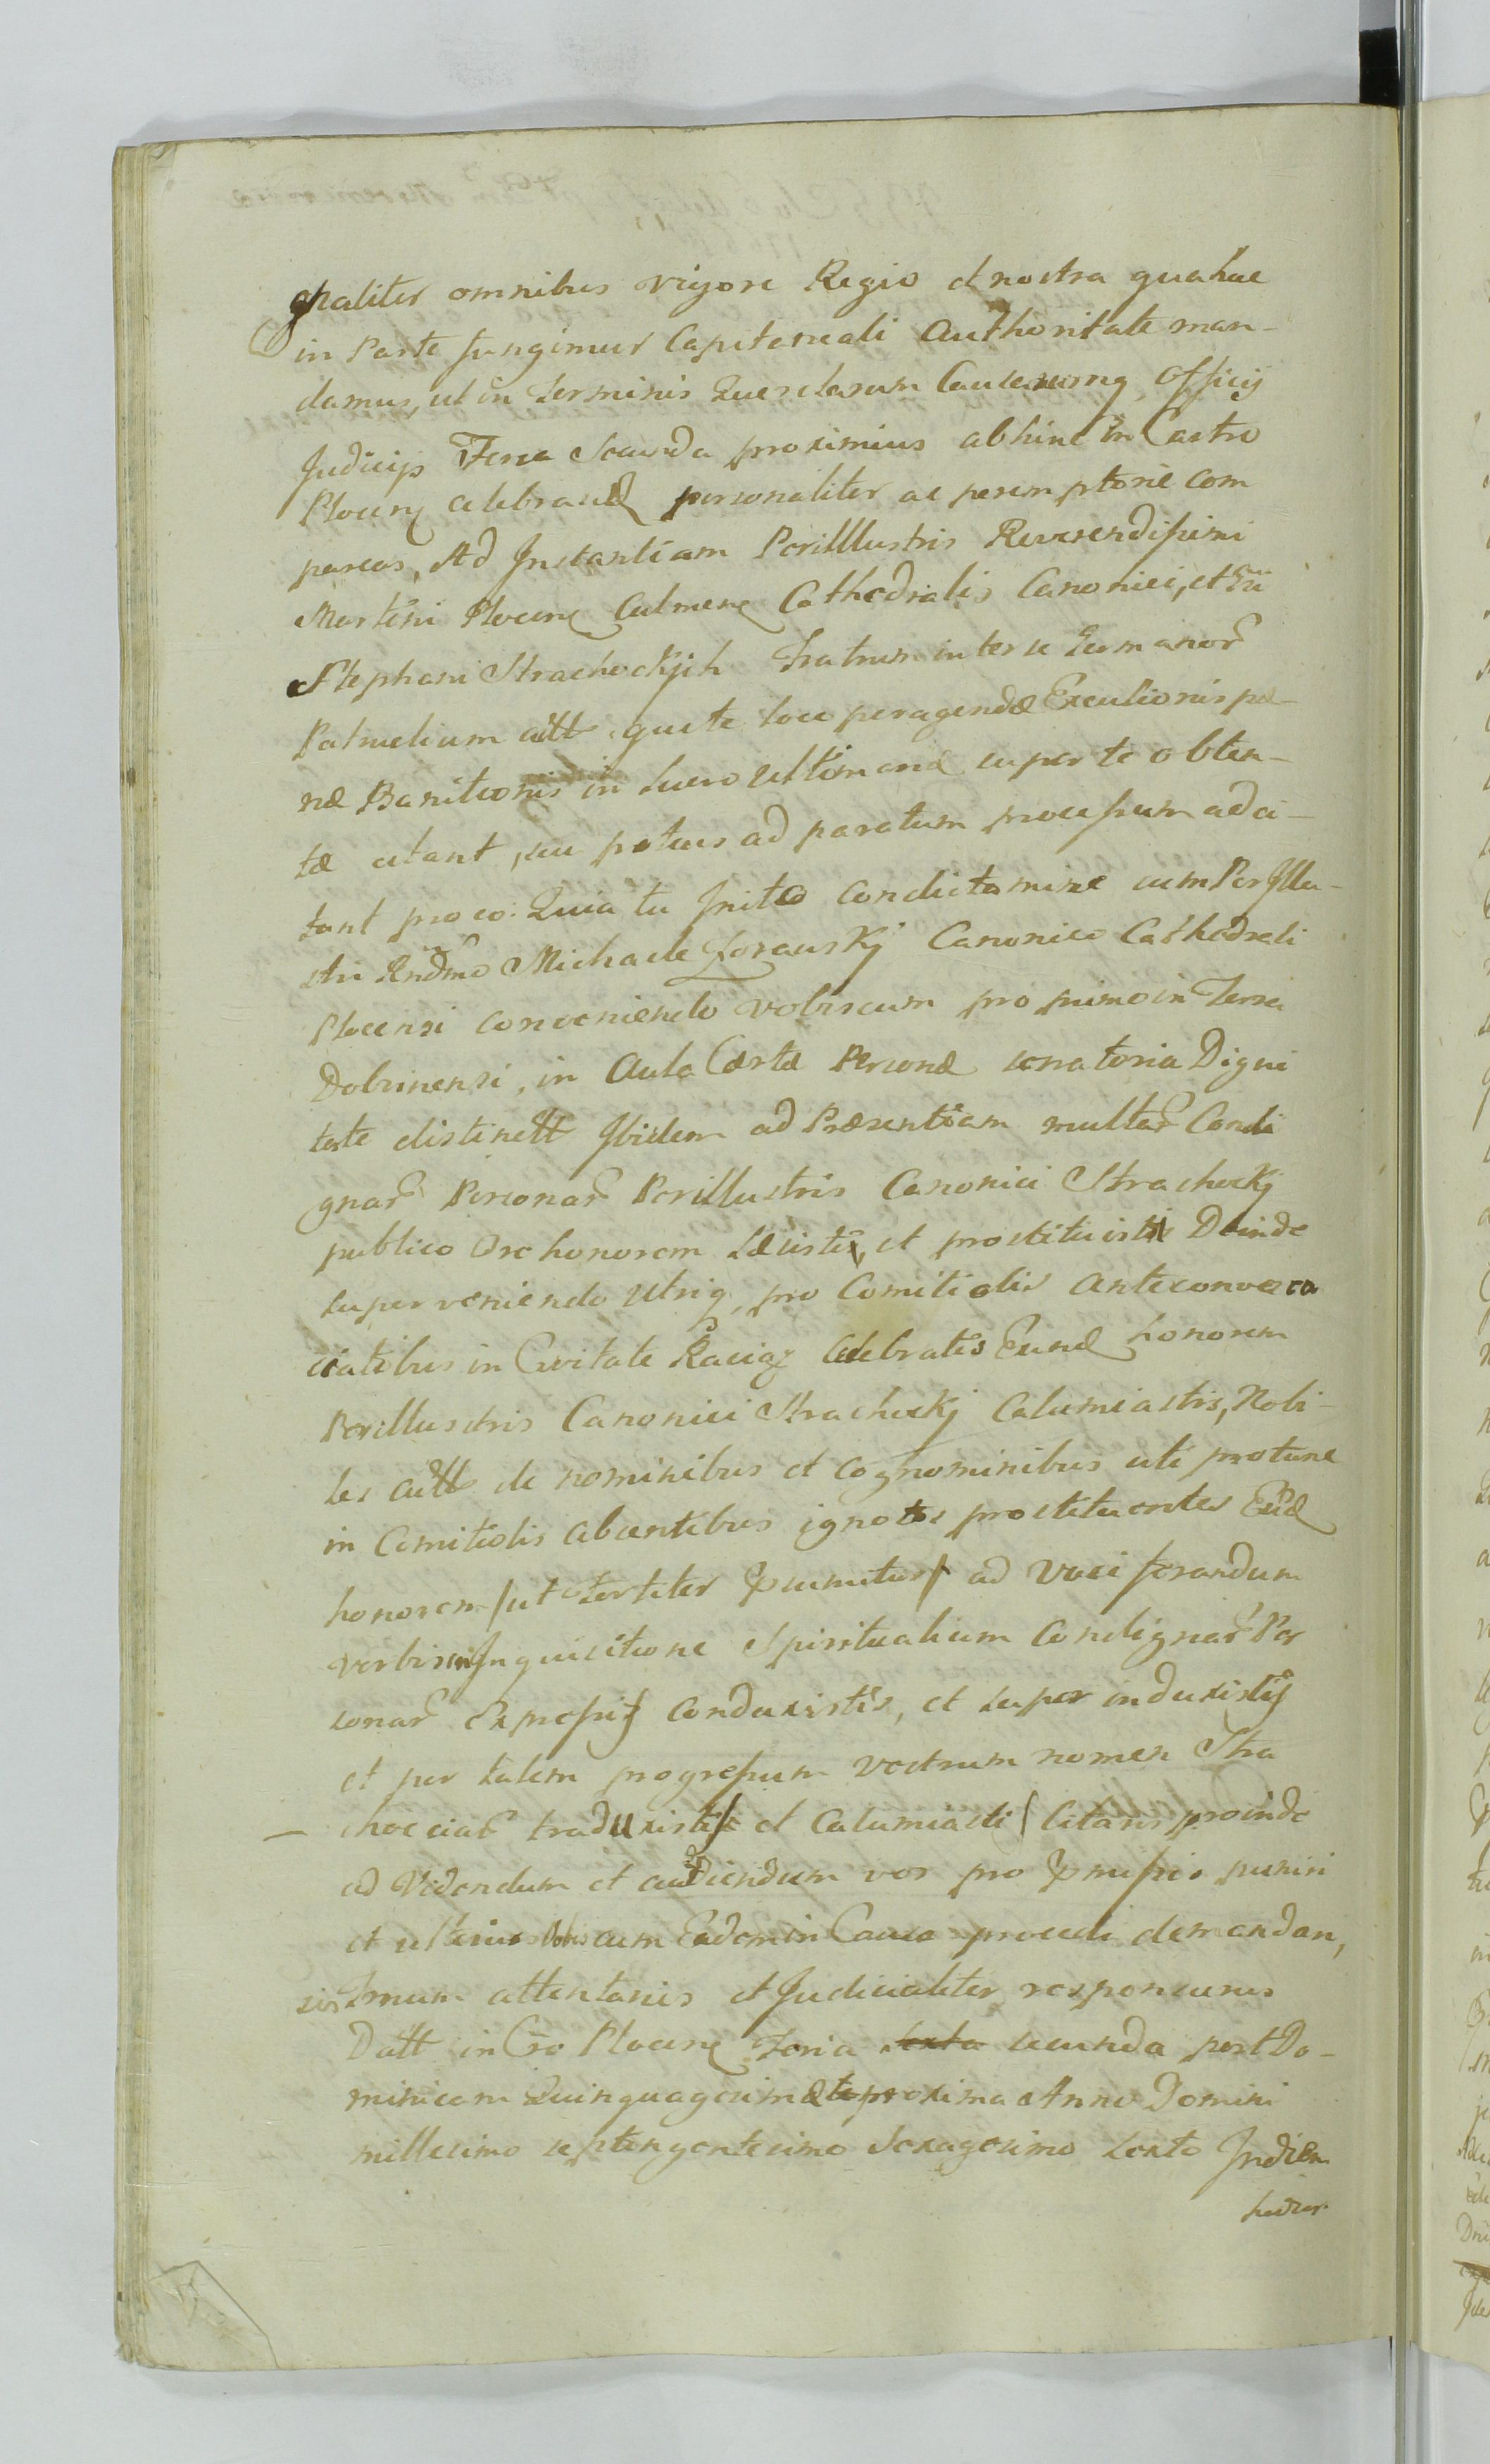 gnaliter omnibus vigore Regio et nostra qua hac
in Parte fungimur Capitaneali Authoritate man-
damus, ut in Terminis Querelarum Causarumq Officij
Judicijs Feria Secunda proximius abhinc in Castro
Plocen celebrand personaliter ac peremptorie com
pareas, Ad Instantiam Perilllustris Reverendissimi
Martini Plocen Culmen Cathedralis Canonici, et
Stephani Strachockich Fratrum inter se Germanor
Patruelium qui te loco peragendæ Executionis pæ-
næ Banitionis in lucro ultimariæ super te obten-
tæ citant, seu potius ad paratum processum adci-
tant pro eo: Quia tu Inito condictamine cum Per Illu-
stri Rndmo Michaele Zorawskj Canonico Cathedrali
Plocensi conveniendo vobiscum pro primo in Terra
Dobrinensi, in Aula Certæ Personæ senatoria Digni
tate distinctt Ibidem ad Præsentiam multar Condi
gnar Personar Perillustris Canonici Strachockj
publico Ore honorem Læsistis, et prostituistis Deinde
superveniendo utriq, pro Comitiolis Anteconvoca
cialibus in Civitate Raciąz Celebratis Eund honorem
Perillustris Canonici Strachockj Calumiastis, Nobi-
les de nominibus et cognominibus uti protunc
in Comitiolis absentibus ignotos prostituentes Eund
honorem ad vociferandum
verbis in Inquisitione Spiritualium Condignar Per
sonar Expressis Conduxistis, et super induxistis
et per talem progressum vestrum nomen Stra
chocciar traduxistis et Calumiasti Citaris proinde
ad Videndum et audiendum vos pro Pmissis puniri
et ulterius Vobiscum Eadem in Causa procedi demandan,
sis Trnum attentaris et Judicialiter responsurus
Datt in Cro Plocen Feria sexta secunda post Do-
minicam Quinquagesimæ proxima Anno Domini
millesimo septengentesimo Sexagesimo sexto Indiem
hodier